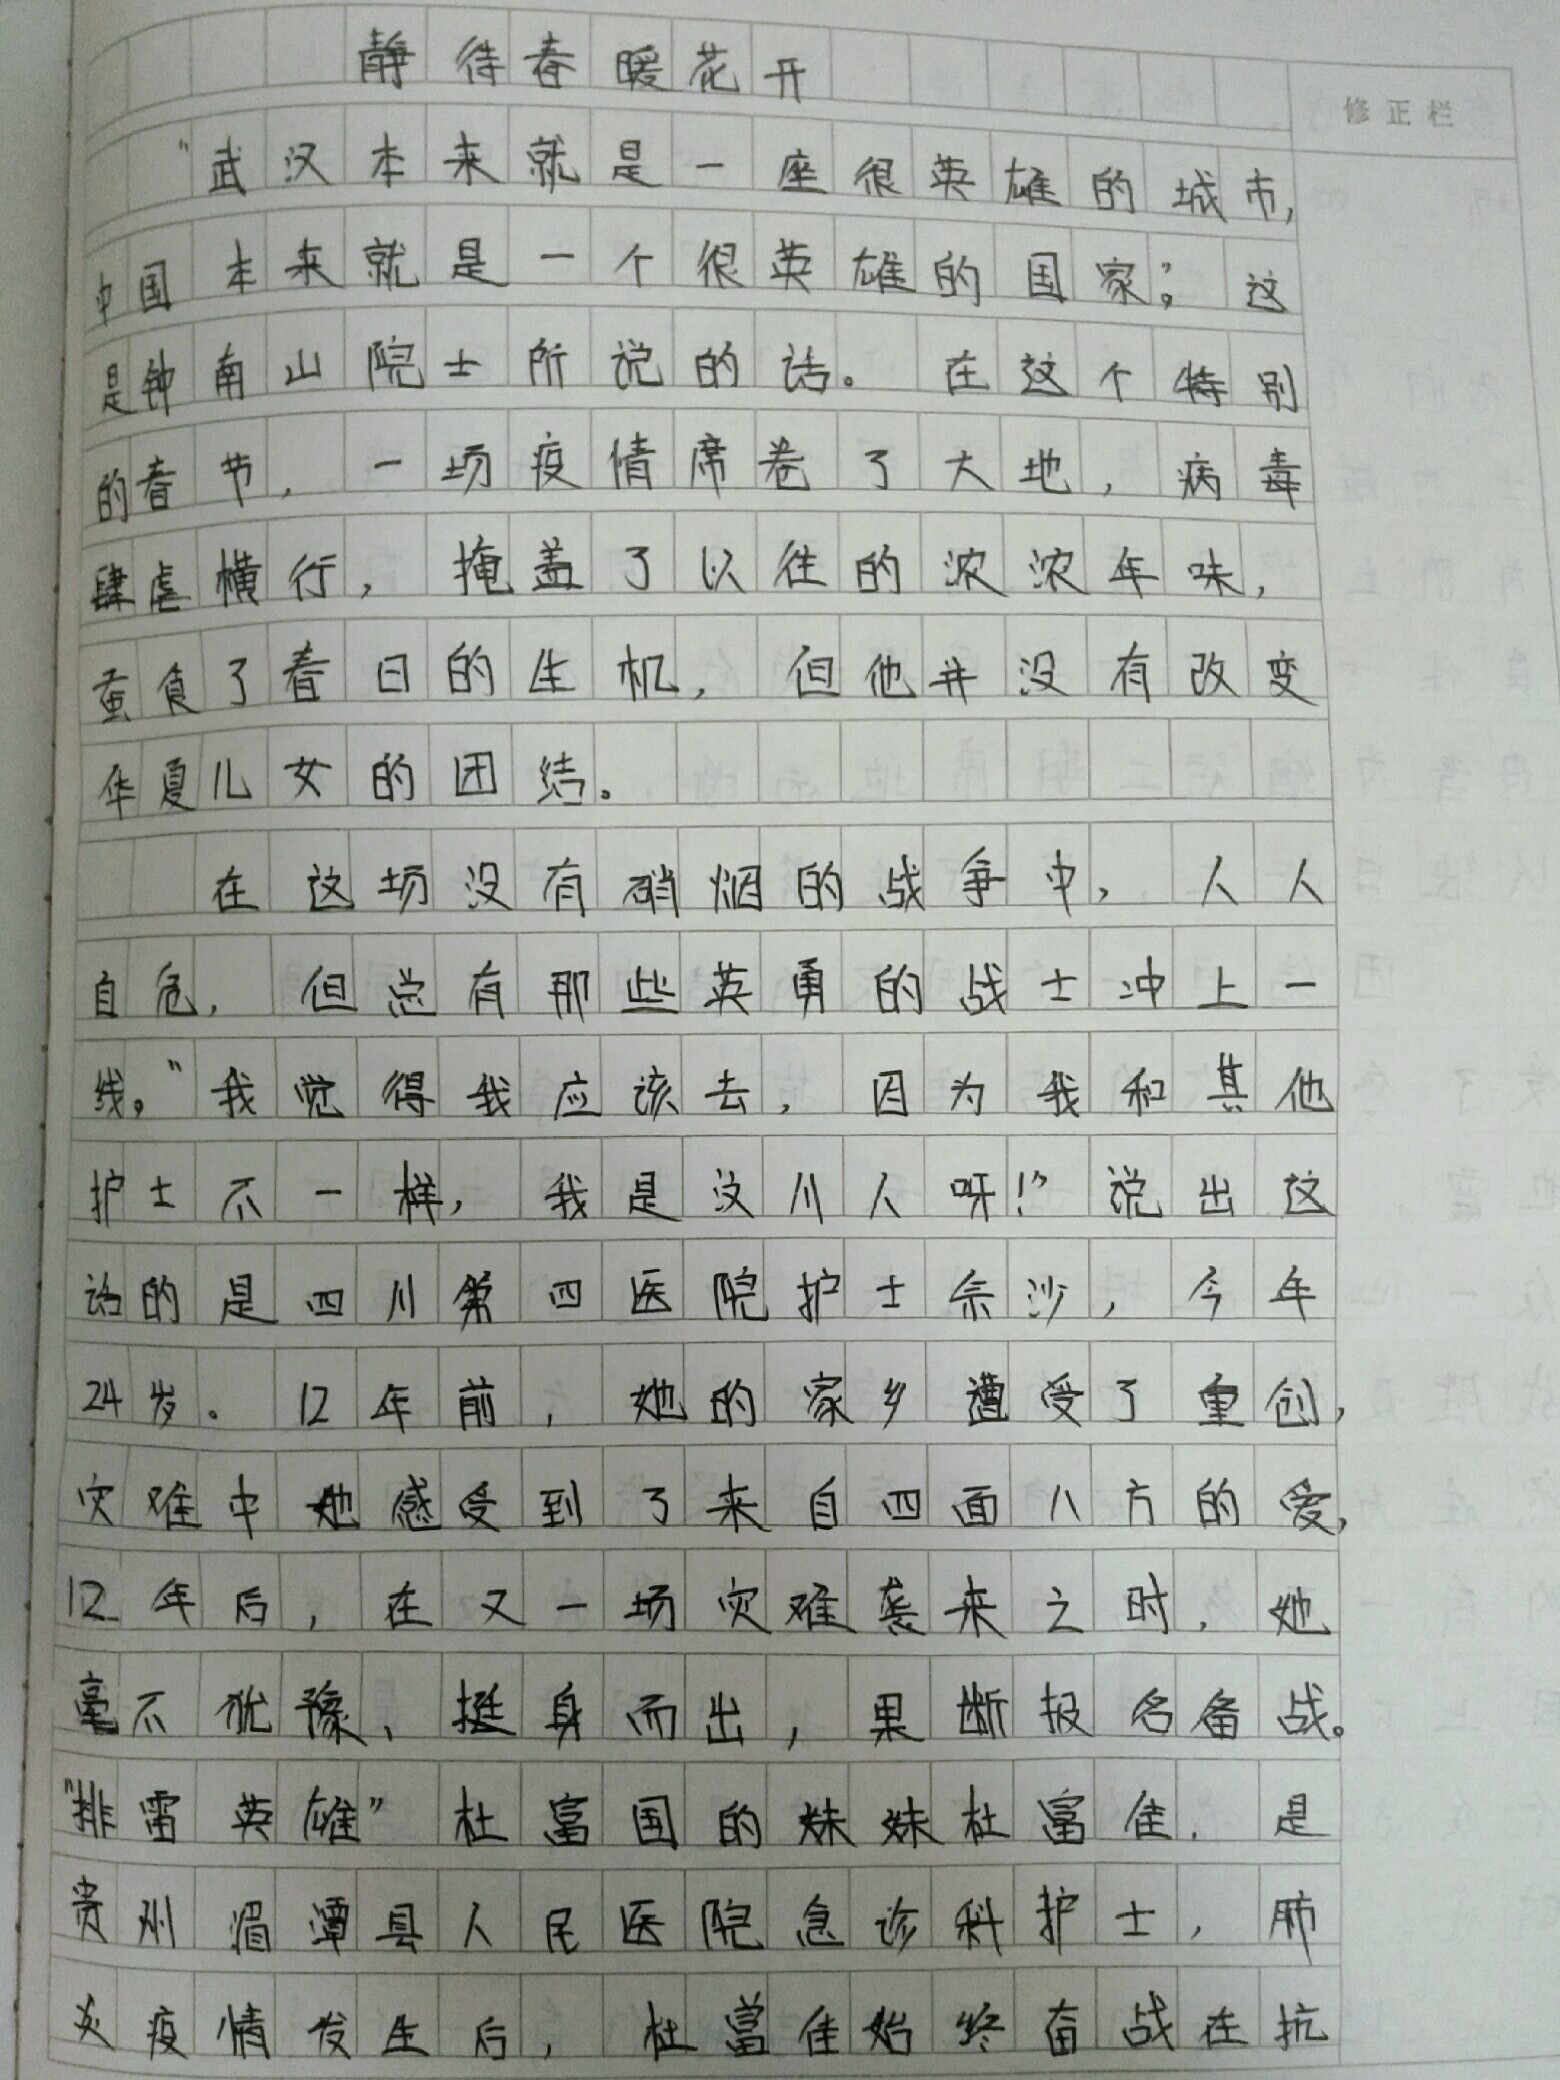 静待春暖花开
修正栏
“武汉本来就是一座很英雄的城市,
中国本来就是一个很英雄的国家”。这
是钟南山院士所说的话。在这个特别
的春节，一场疫情席卷了大地，病毒
肆虐横行，掩盖了以往的浓浓年味，
蚕食了春日的生机，但他并没有改变
华夏儿女的团结。
在这场没有硝烟的战争中，人人
自危，但总有那些英勇的战士冲上一
线。“我觉得我应该去，因为我和其他
护士不一样，我是汶川人呀!”说出这
话的是四川第四医院护士佘沙，今年
24岁。12年前，她的家乡遭受了重创，
灾难中她感受到了来自四面八方的爱，
12年后，在又一场灾难袭来之时，她
毫不犹豫、挺身而出，果断报名备战。
“排雷英雄”杜富国的妹妹杜富佳，是
贵州湄潭县人民医院急诊科护士，肺
炎疫情发生后，杜富佳始终奋战在抗